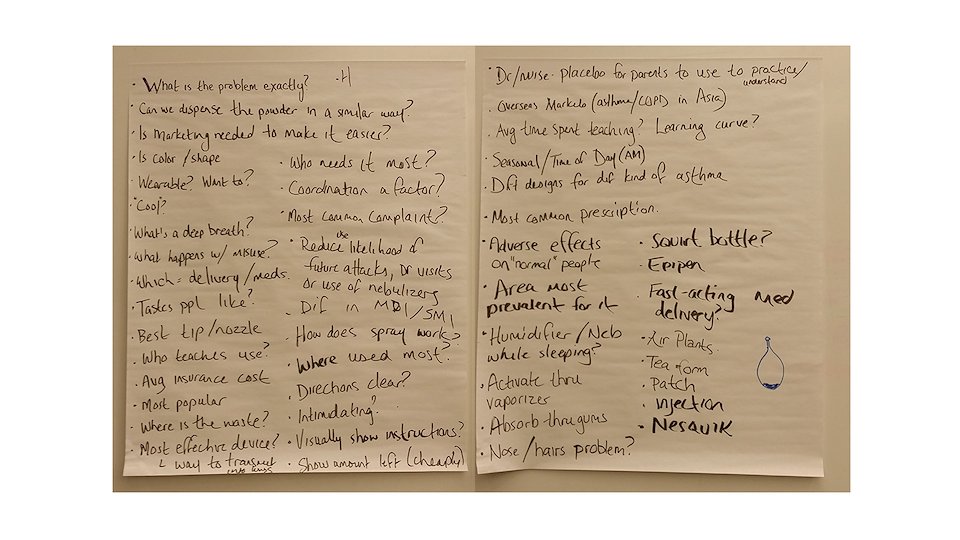 · What is the problem exactly?
· H
· Can we dispense the powder in a similar way?
· Is Marketing needed to make it easier?
· Is color/shape
· Wearable? Want to?
· "Cool?
· What's a deep breath?
· What happens w/ misuse?
· Which = delivery/meds.
· Tastes ppl like?
· Best tip/nozzle
· Who teaches use?
· Avg insurance cost
· Most popular
· Where is the waste?
· Most effective device?
└ way to transmit
into lungs
· Who needs it most?
· Coordination a factor?
· Most common Complaint?
use
· Reduce likelihood of
future attacks, Dr visits
or use of nebulizers
· Dif in MDI/SMI
· How does spray work?
· Where used most?
· Directions clear?
· Intimidating?
· Visually show instructions?
· Show amount left (cheaply)
· Dr/nurse - placebo for parents to use to practice/
understand
· Overseas Markets (asthma/COPD in Asia)
· Avg time spent teaching? Learning curve?
· Seasonal/Time of Day (AM)
· Dift designs for dif kind of asthma
· Most common prescription.
· Adverse effects
on "normal" people
· Area most
prevalent for it
· Humidifier/Neb
while sleeping?
· Activate thru
vaporizer
· Absorb thru gums
· Nose/hairs problem?
· Squirt bottle?
· Epipen
· Fast-acting med
delivery?
· Air Plants.
· Tea form
· Patch
· Injection
· Nesquik